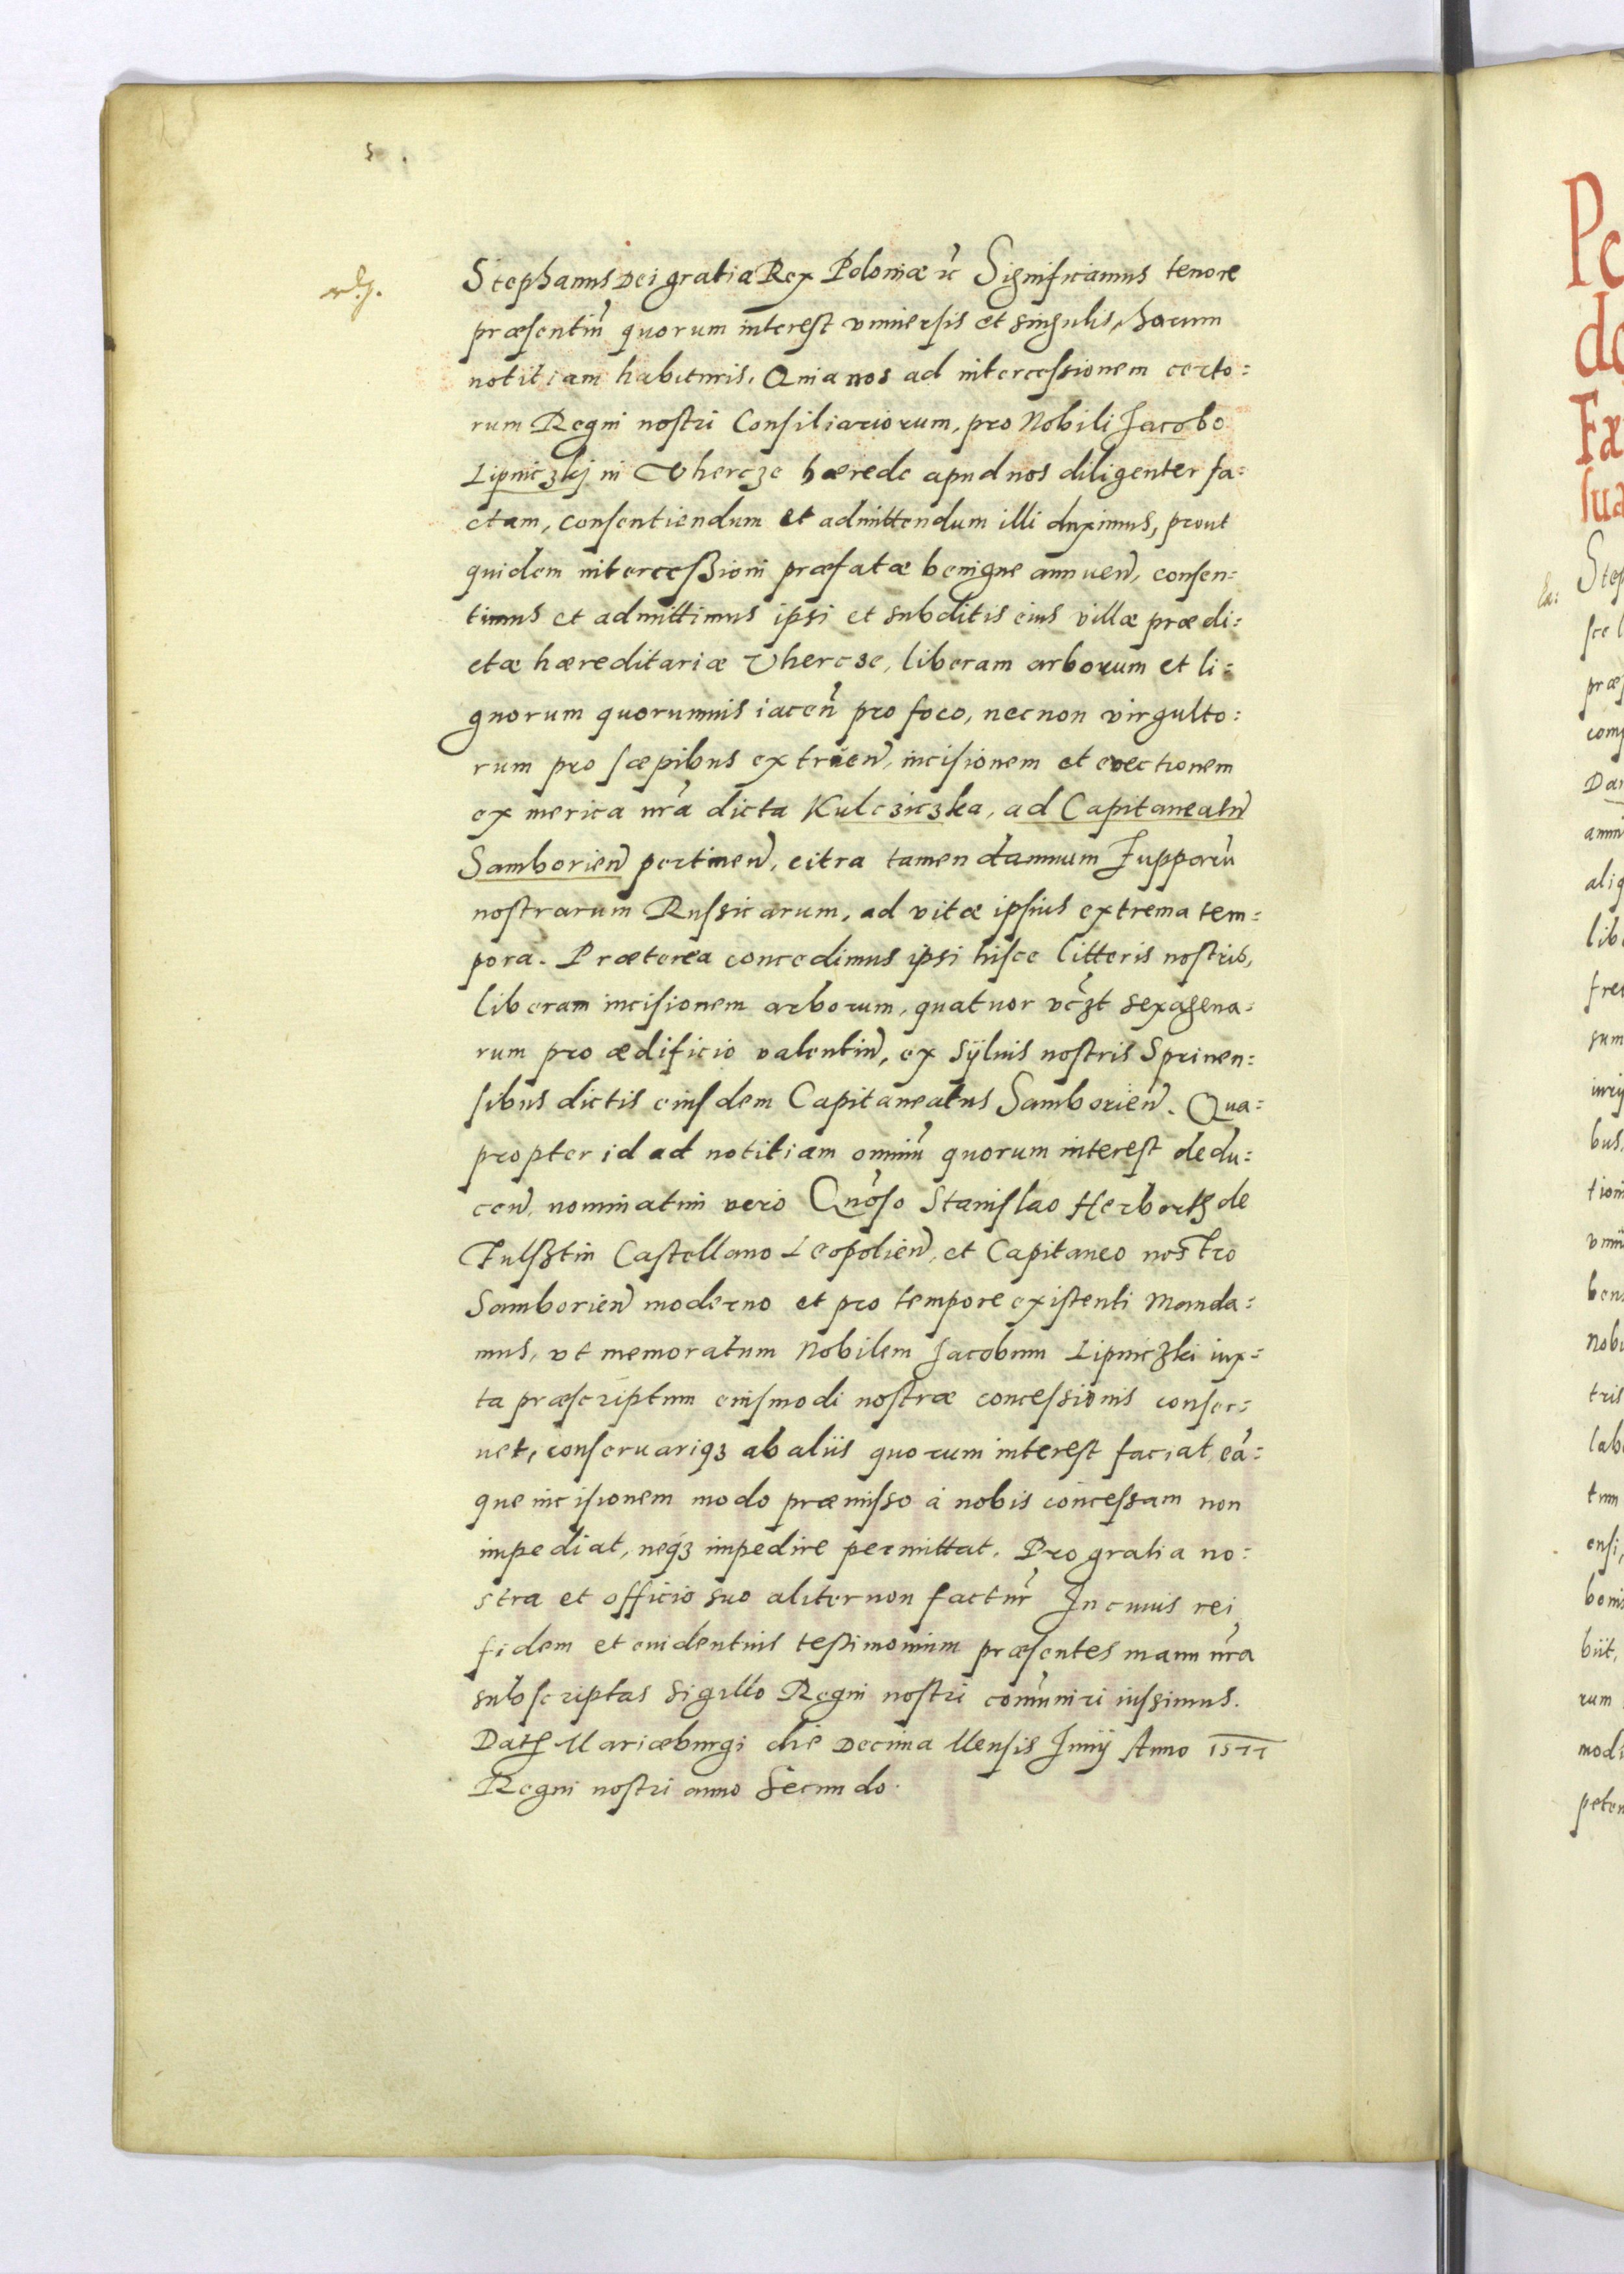 Stephanus Dei gratia Rex Poloniæ ꝛc Significamus tenore
præsentiũ quorum interest vniuersis et singulis, harum
notitiam habituris. Quia nos ad intercessionem certo:
rum Regni nostri Consiliariorum, pro Nobili Jacobo
Lipniczkj in Vhercze hærede apud nos diligenter fa:
ctam, consentiendum et admittendum illi duximus, prout
quidem intercessioni præfatæ benigne annueñ, consen:
timus et admittimus ipsi et subditis eius villæ prædi:
ctæ hæreditariæ Vhercse, liberam arborum et li:
gnorum quorumuis iaceñ pro foco, necnon virgulto:
rum pro sæpibus extrueñ, incisionem et euectionem
ex merica nr̃a dicta Kulcziczka, ad Capitaneatũ
Samborieñ pertineñ, citra tamen damnum Jupparũ
nostrarum Russicarum, ad vitæ ipsius extrema tem:
pora. Præterea concedimus ipsi hisce litteris nostris,
liberam incisionem arborum, quatuor vcꝫt sexagena:
rum pro ædificio valentiũ, ex syluis nostris Sprinen:
sibus dictis eiusdem Capitaneatus Samborieñ. Qua:
propter id ad notitiam omniũ quorum interest dedu:
ceñ, nominatim vero Gñoso Stanislao Herborth de
Fulsztin Castellano Leopolieñ, et Capitaneo nostro
Samborieñ moderno et pro tempore existenti Manda:
mus, vt memoratum Nobilem Jacobum Lipniczki iux:
ta præscriptum eiusmodi nostræ concessionis conser:
uet, conseruariqꝫ ab aliis quorum interest faciat, eã:
que incisionem modo præmisso à nobis concessam non
impediat, neqꝫ impedire permittat. Pro gratia no:
stra et officio suo aliter non factur̃ In cuius rei
fidem et euidentius testimonium præsentes manu nr̃a
subscriptas sigillo Regni nostri com̃uniri iussimus.
Datꝭ Mariæburgi die Decima Mensis Junij Anno 1577
Regni nostri anno Secundo.
Pe
de
Fa
sua
Step
præ
com